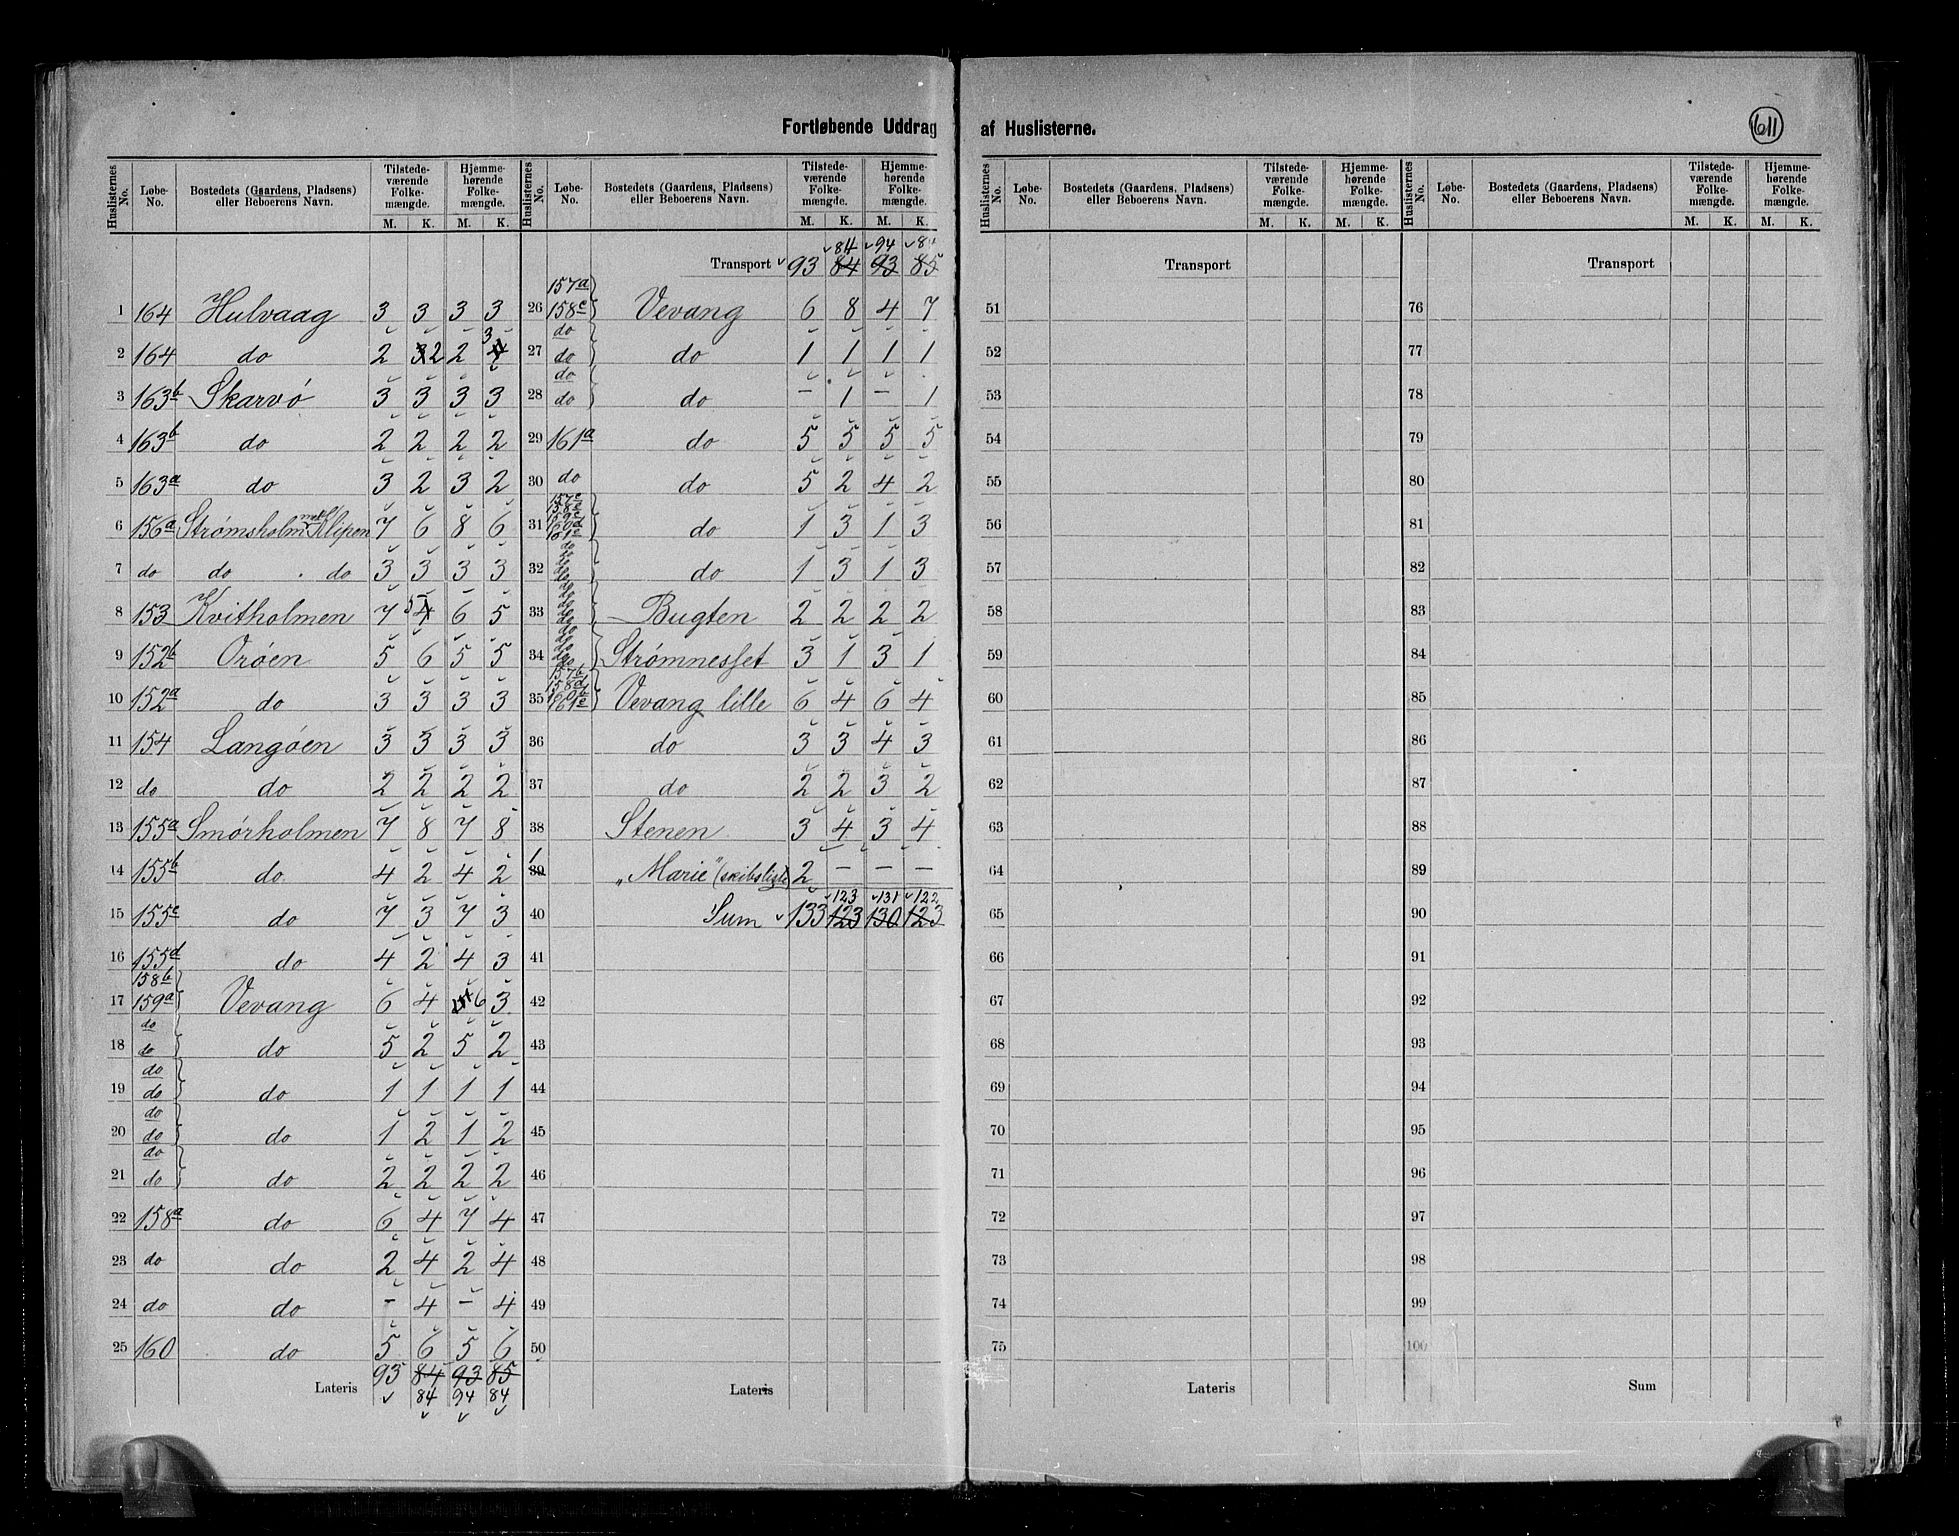 Fortløbende Uddrag af Huslisterne.
611
Huslisternes No. | Løbe-No. | Bostedets (Gaardens, Pladsens) eller Beboerens Navn. | Tilstedeværende Folkemængde. M. K. | Hjemmehørende Folkemængde. M. K.
1 164 Hulvaag 3 3 3 3
2 164 do 2 3 2 2 3 4
3 163b Skarvö 3 3 3 3
4 163b do 2 2 2 2
5 163a do 3 2 3 2
6 156a Strømsholm med Klipen 7 6 8 6
7 do do . do 3 3 3 3
8 153 Kvitholmen 7 5 4 6 5
9 152b Orøen 5 6 5 5
10 152a do 3 3 3 3
11 154 Langøen 3 3 3 3
12 do do 2 2 2 2
13 155a Smörholmen 7 8 7 8
14 155b do 4 2 4 2
15 155c do 7 3 7 3
16 155d do 4 2 4 3
17 158b 159a Vevang 6 4 6 3
18 do do do 5 2 5 2
19 do do do 1 1 1 1
20 do do do 1 2 1 2
21 do do do 2 2 2 2
22 158a do 6 4 7 4
23 do do 2 4 2 4
24 do do - 4 - 4
25 160 do 5 6 5 6
93 84 93 85
Lateris 84 94 84
Huslisternes No. | Løbe-No. | Bostedets (Gaardens, Pladsens) eller Beboerens Navn. | Tilstedeværende Folkemængde. M. K. | Hjemmehørende Folkemængde. M. K.
84 94 84
Transport 93 84 93 85
26 157a 158c Vevang 6 8 4 7
27 do do do 1 1 1 1
28 do do do - 1 - 1
29 161a do 5 5 5 5
30 do do 5 2 4 2
31 do 1 3 1 3
32 do 1 3 1 3
33 Bugten 2 2 2 2
34 Strømnesset 3 1 3 1
35 157b 158d Vevang lille 6 4 6 4
36 do 3 3 4 3
37 do 2 2 3 2
38 Stenen 3 4 3 4
39 „Marie" (skibsliste) 2 - - -
123 131 122
40 Sum 133 123 130 123
41
42
43
44
45
46
47
48
49
50
Lateris
Huslisternes No. | Løbe-No. | Bostedets (Gaardens, Pladsens) eller Beboerens Navn. | Tilstedeværende Folkemængde. M. K. | Hjemmehørende Folkemængde. M. K.
Transport
51
52
53
54
55
56
57
58
59
60
61
62
63
64
65
66
67
68
69
70
71
72
73
74
75
Lateris
Huslisternes No. | Løbe-No. | Bostedets (Gaardens, Pladsens) eller Beboerens Navn. | Tilstedeværende Folkemængde. M. K. | Hjemmehørende Folkemængde. M. K.
Transport
76
77
78
79
80
81
82
83
84
85
86
87
88
89
90
91
92
93
94
95
96
97
98
99
100
Sum